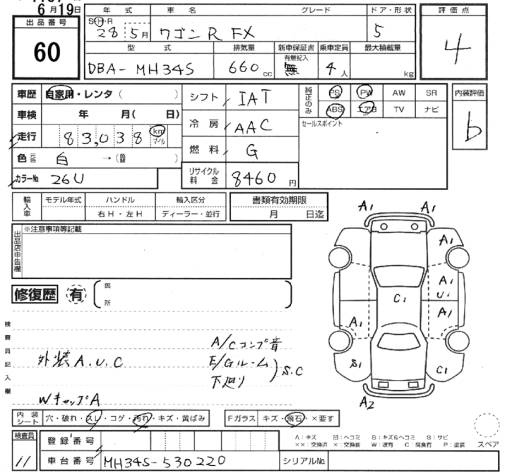 6月19日
出品番号
60
年式 車名 グレード ドア・形状
S・H・R
28年5月 ワゴンR FX 5
型式 排気量 新車保証書 乗車定員 最大積載量
有無記入
DBA- MH34S 660cc 無 4人 kg
評価点
4
車歴 自家用・レンタ( )
車検 年 月( 日)
走行 83,038 km マイル
色 元色 白 →(替 )
カラーNo 26U
シフト IAT
冷房 AAC
燃料 G
リサイクル料金 8460円
純正のみ PS PW AW SR
ABS エアB TV ナビ
セールスポイント
内装評価
b
輸入車 モデル年式 ハンドル 輸入区分
右H・左H ディーラー・並行
書類有効期限
月 日迄
出品店申告欄
※注意事項等記載
修復歴 有 箇所
検査員記入欄
外装A.U.C
Wキャップ A
A/Cコンプ音
E/Gルーム
下廻り
S.C
A1 A1
A1 A1
A1 U1
C1
A1 A1
S1 C1
A2
内装シート 穴・破れ・スレ・コゲ・汚れ・キズ・黄ばみ
Fガラス キズ・飛石・×要す
検査員 11
登録番号
車台番号 MH34S-530220
シリアルNo
A:キズ U:ヘコミ B:キズ&ヘコミ S:サビ
XX:交換済 X:要交換 W:波有 C:腐食有 P:塗装
スペア